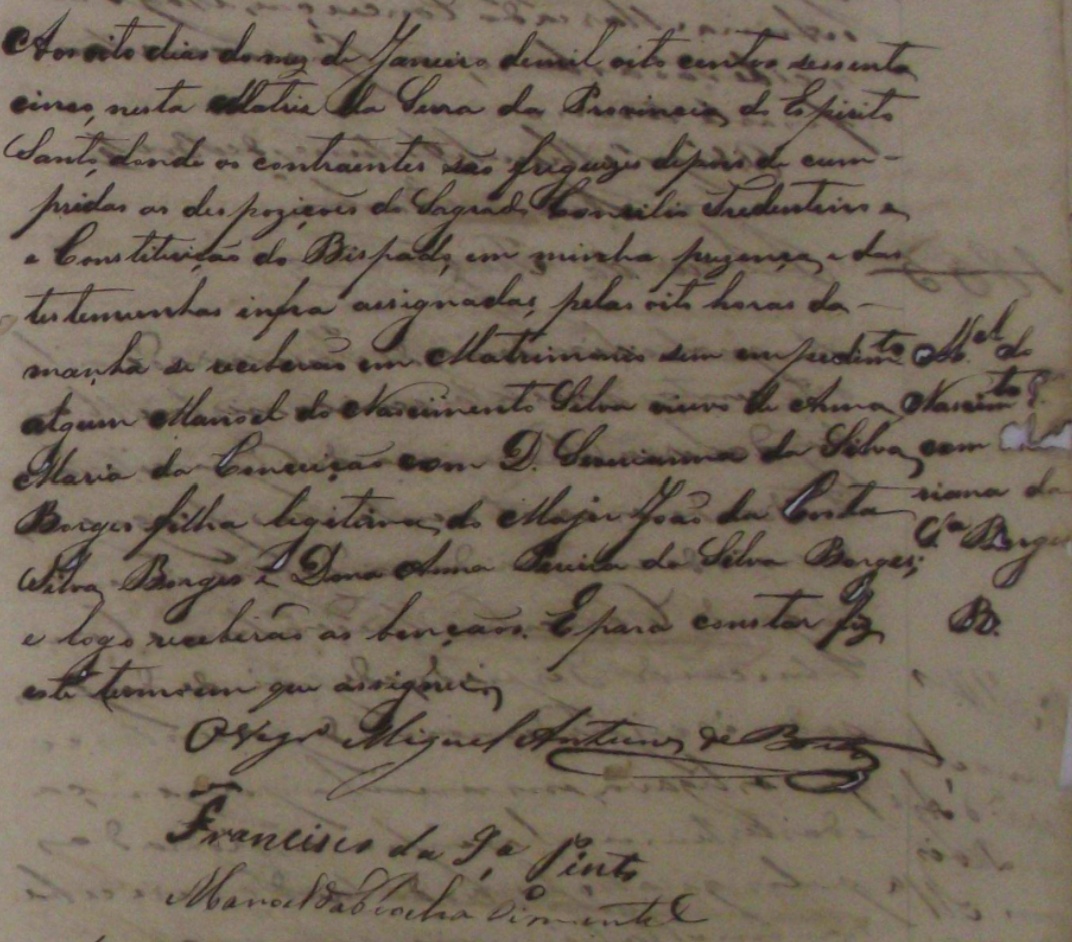 Aos oito dias do mez de Janeiro de mil oito centos sessenta
cinco, nesta Matriz da Serra da Provincia do Espirito
Santo, donde os contraentes são freguezes depois de cum-
pridas as despozições do Sagrado Concilio Tredentino e
e Constituição do Bispado, em minha prezença, e das
testemunhas infra assignadas, pelas oito horas da
manhã se receberão em Matrimonio sem empedimto
algum Manoel do Nascimento Silva viuvo de Anna
Maria da Conceição com D. da Silva
Borges filha legitima do Major João da Costa
Silva Borges e Dona Anna Pereira da Silva Borges;
e logo receberão as bençãos. E para constar fiz
este termo em que assignei,
O Vigro Miguel Antunes de
Francisco da Pinto
Manoel da Rocha Pimentel
Mel do
Nascimto S.
com
riana da
Sa Borges
B.